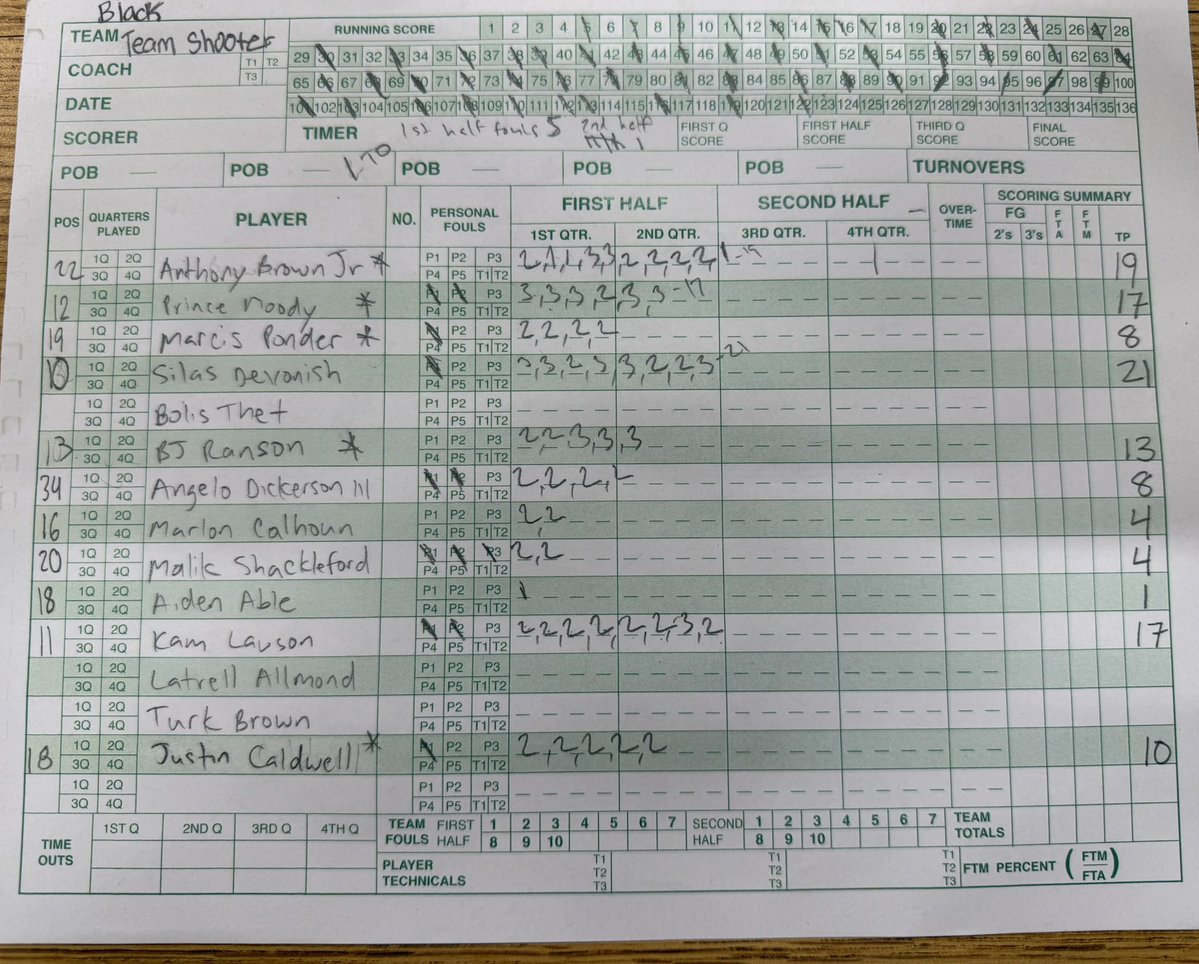 Black
TEAM Team Shooter RUNNING SCORE 1 2 3 4 5 6 7 8 9 10 11 12 13 14 15 16 17 18 19 20 21 22 23 24 25 26 27 28
COACH T1 T2 T3 29 30 31 32 33 34 35 36 37 38 39 40 41 42 43 44 45 46 47 48 49 50 51 52 53 54 55 56 57 58 59 60 61 62 63 64
65 66 67 68 69 70 71 72 73 74 75 76 77 78 79 80 81 82 83 84 85 86 87 88 89 90 91 92 93 94 95 96 97 98 99 100
DATE 101 102 103 104 105 106 107 108 109 110 111 112 113 114 115 116 117 118 119 120 121 122 123 124 125 126 127 128 129 130 131 132 133 134 135 136
SCORER TIMER 1st half fouls 5 2nd half 1 FIRST Q SCORE FIRST HALF SCORE THIRD Q SCORE FINAL SCORE
POB POB POB POB POB TURNOVERS
POS QUARTERS PLAYED PLAYER NO. PERSONAL FOULS FIRST HALF SECOND HALF OVER-TIME SCORING SUMMARY
1ST QTR. 2ND QTR. 3RD QTR. 4TH QTR. FG 2's 3's FTA FTM TP
22 1Q 2Q Anthony Brown Jr * P1 P2 P3 2,1,1,3,3,2,2,2,2,1-19 1 19
3Q 4Q P4 P5 T1 T2
12 1Q 2Q Prince Moody * P1 P2 P3 3,3,3,2,3,3-17 17
3Q 4Q P4 P5 T1 T2
19 1Q 2Q Marcis Ponder * P1 P2 P3 2,2,2,2 8
3Q 4Q P4 P5 T1 T2
10 1Q 2Q Silas Devonish P1 P2 P3 3,3,2,3,3,2,2,3-21 21
3Q 4Q P4 P5 T1 T2
1Q 2Q Bolis Thet P1 P2 P3
3Q 4Q P4 P5 T1 T2
13 1Q 2Q BJ Ranson * P1 P2 P3 2,2,3,3,3 13
3Q 4Q P4 P5 T1 T2
34 1Q 2Q Angelo Dickerson III P1 P2 P3 2,2,2,2 8
3Q 4Q P4 P5 T1 T2
16 1Q 2Q Marlon Calhoun P1 P2 P3 2,2 4
3Q 4Q P4 P5 T1 T2
20 1Q 2Q Malik Shackleford P1 P2 P3 2,2 4
3Q 4Q P4 P5 T1 T2
18 1Q 2Q Aiden Able P1 P2 P3 1 1
3Q 4Q P4 P5 T1 T2
11 1Q 2Q Kam Lawson P1 P2 P3 2,2,2,2,2,2,3,2 17
3Q 4Q P4 P5 T1 T2
1Q 2Q Latrell Allmond P1 P2 P3
3Q 4Q P4 P5 T1 T2
1Q 2Q Turk Brown P1 P2 P3
3Q 4Q P4 P5 T1 T2
18 1Q 2Q Justin Caldwell * P1 P2 P3 2,2,2,2,2 10
3Q 4Q P4 P5 T1 T2
1Q 2Q P1 P2 P3
3Q 4Q P4 P5 T1 T2
TIME OUTS 1ST Q 2ND Q 3RD Q 4TH Q TEAM FOULS FIRST HALF 1 2 3 4 5 6 7 8 9 10 SECOND HALF 1 2 3 4 5 6 7 8 9 10 TEAM TOTALS
PLAYER TECHNICALS T1 T2 T3 T1 T2 T3 T1 T2 T3 FTM PERCENT (FTM FTA)